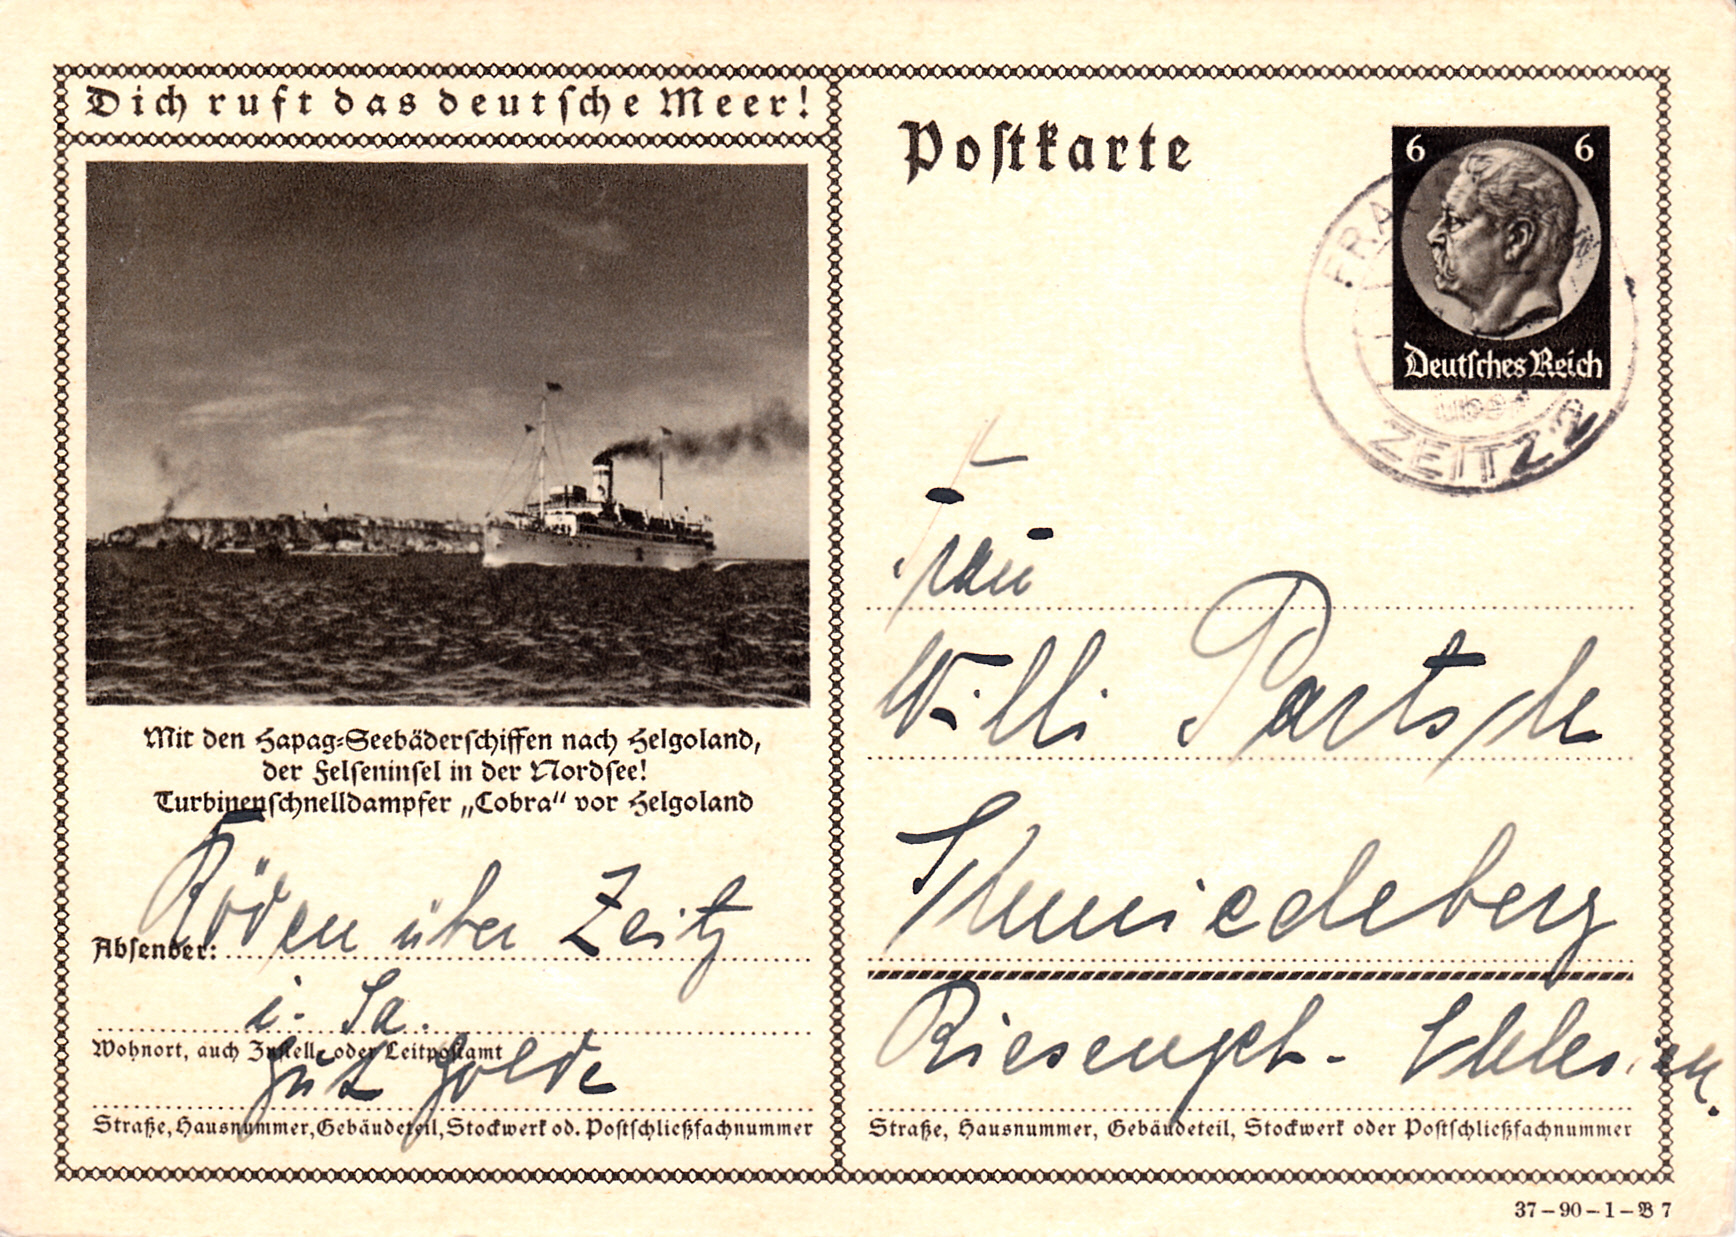 Dich ruft das deutsche Meer!
Mit den Hapag-Seebäderschiffen nach Helgoland,
der Felseninsel in der Nordsee!
Turbinenschnelldampfer „Cobra“ vor Helgoland
Röden über Zeitz
Absender:
i. Sa.
Wohnort, auch Zustell- oder Leitpostamt
Gut Golde
Straße, Hausnummer, Gebäudeteil, Stockwerk od. Postschließfachnummer
Postkarte
6 6
Deutsches Reich
über
ZEITZ 2
Frau
Willi Partsch
Schmiedeberg
Riesengeb. Schlesien.
Straße, Hausnummer, Gebäudeteil, Stockwerk oder Postschließfachnummer
37–90–1–B 7